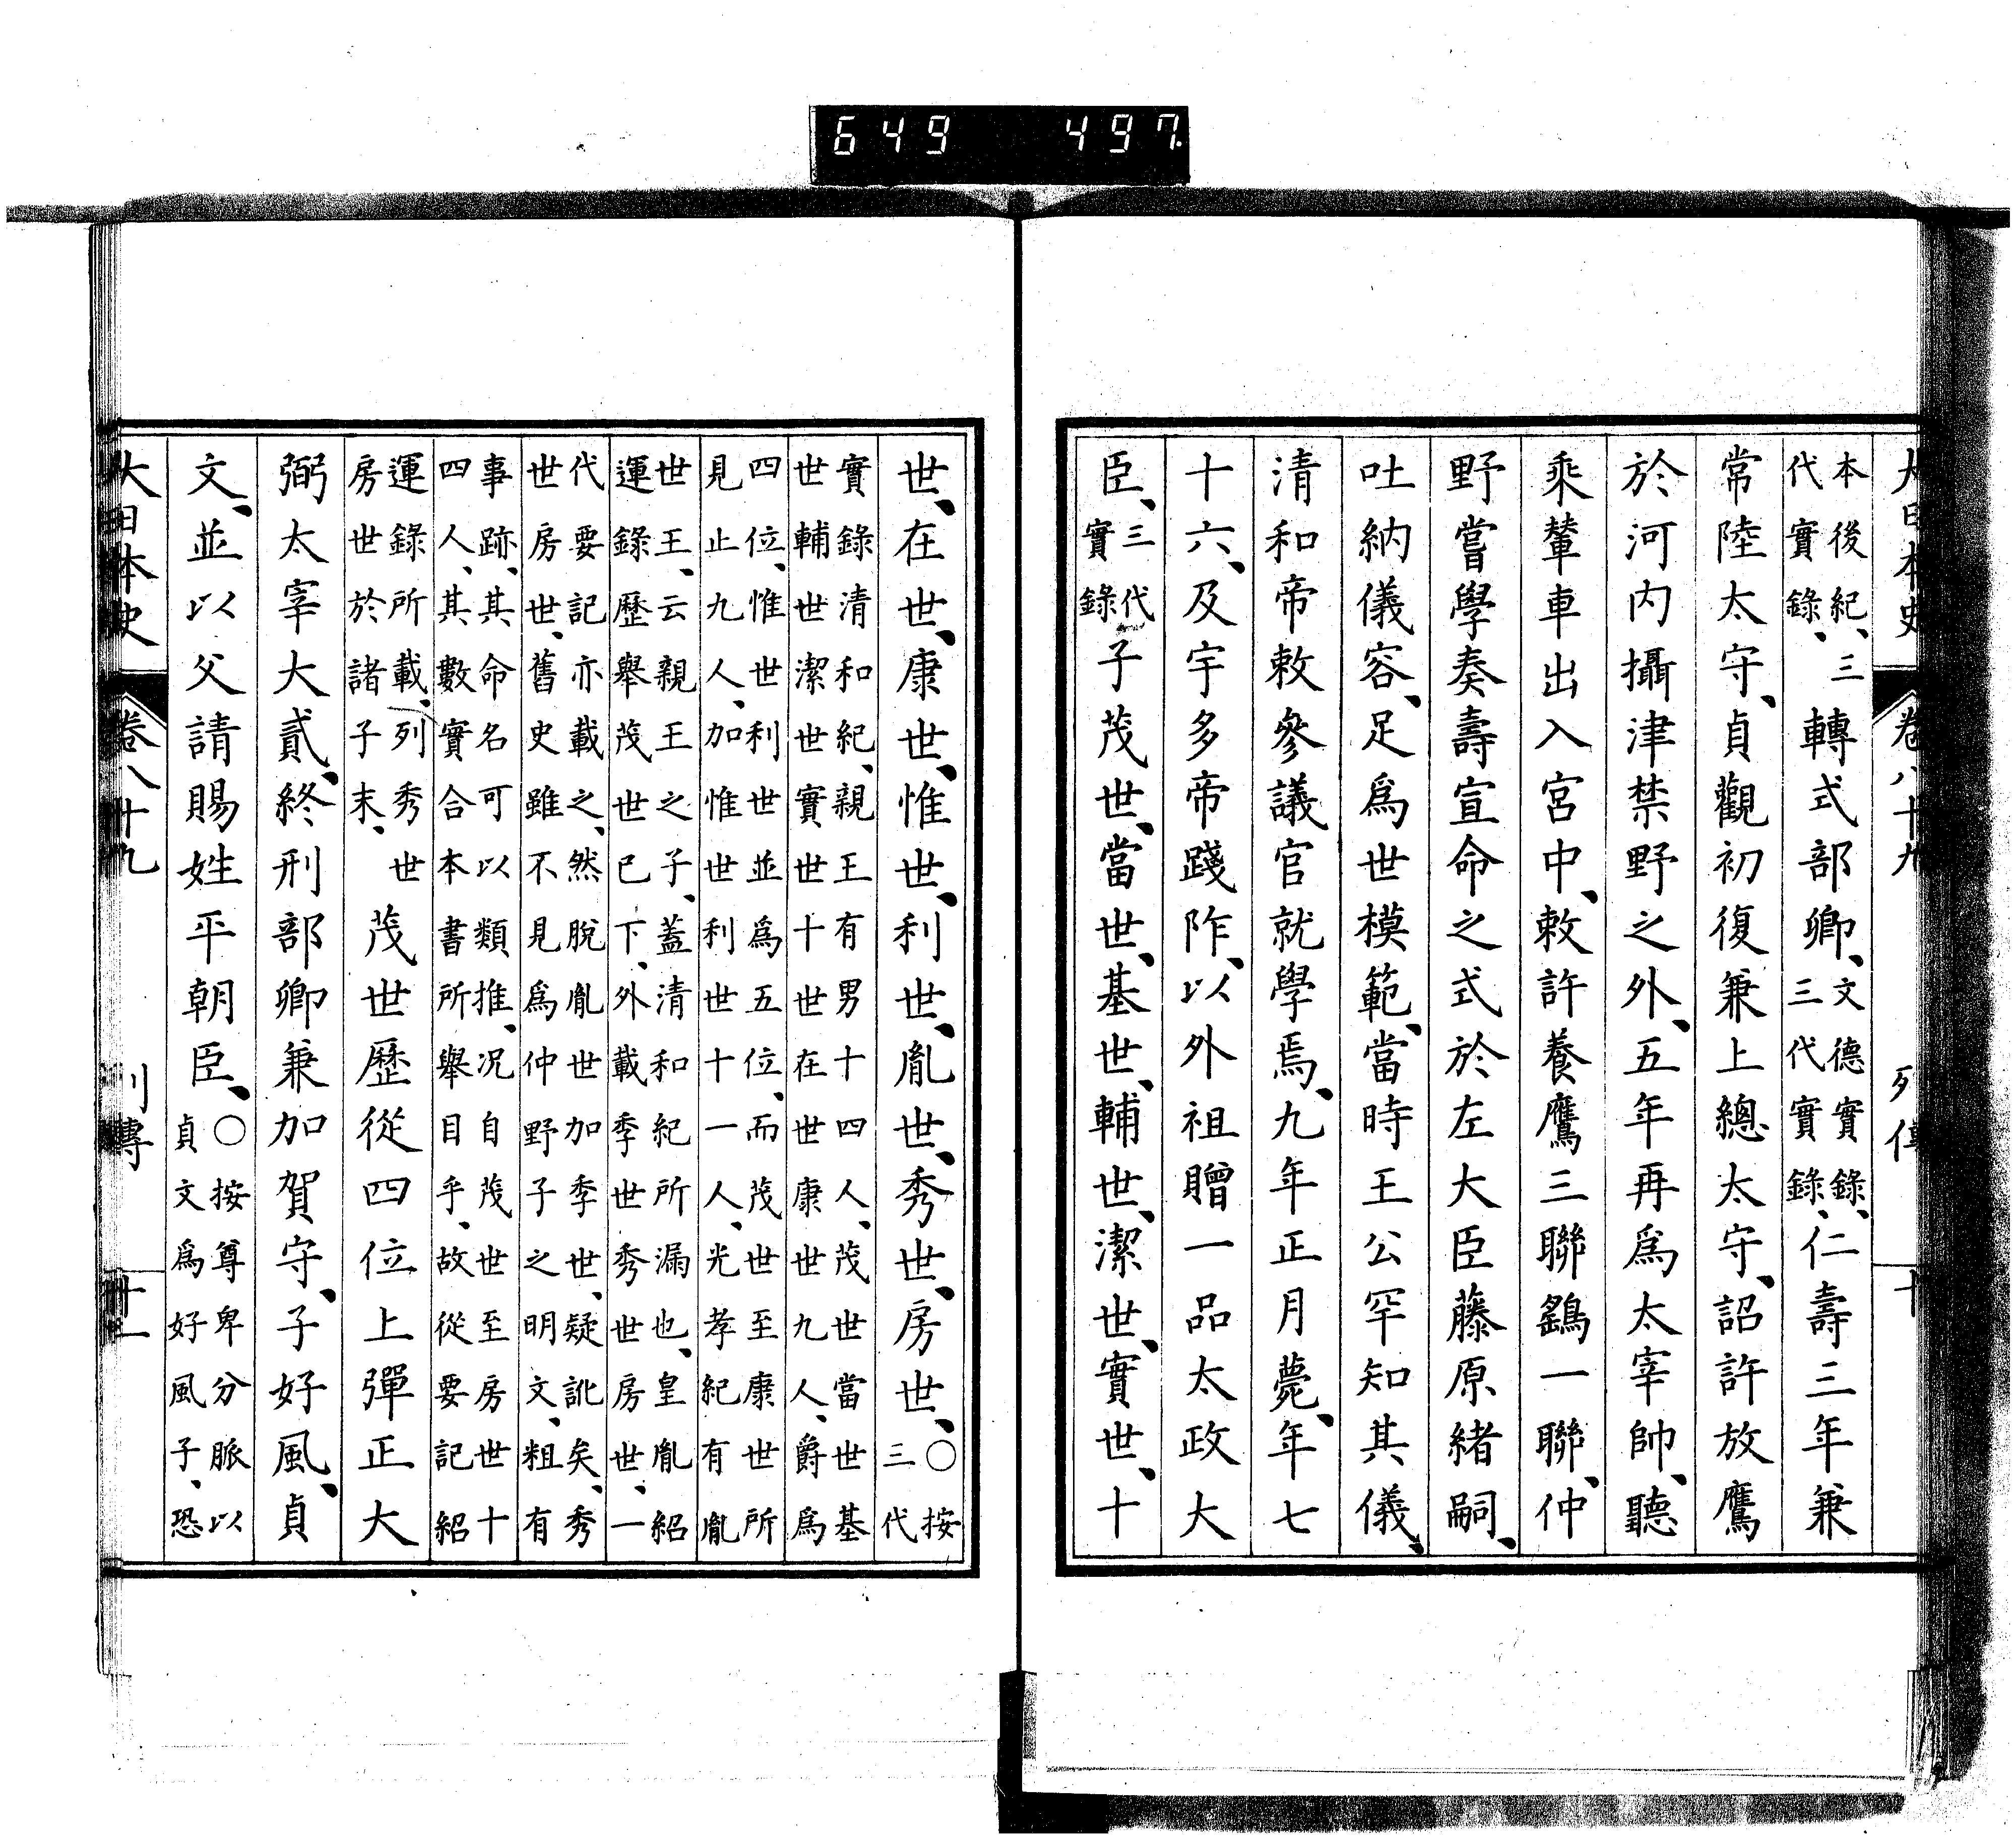 649 497.
大日本史 卷八十九 列傳 十
本後紀、三代實錄、轉式部卿、文德實錄、三代實錄、仁壽三年兼
常陸太守、貞觀初復兼上總太守、詔許放鷹
於河内攝津禁野之外、五年再爲太宰帥、聽
乘輦車出入宮中、敕許養鷹三聯鷂一聯、仲
野嘗學奏壽宣命之式於左大臣藤原緒嗣、
吐納儀容、足爲世模範、當時王公罕知其儀、
清和帝敕參議官就學焉、九年正月薨、年七
十六、及宇多帝踐阼、以外祖贈一品太政大
臣、三代實錄子茂世、當世、基世、輔世、潔世、實世、十
世、在世、康世、惟世、利世、胤世、秀世、房世、〇按三代
實錄清和紀、親王有男十四人、茂世當世基
世輔世潔世實世十世在世康世九人、爵爲
四位、惟世利世並爲五位、而茂世至康世所
見止九人、加惟世利世十一人、光孝紀有胤
世王、云親王之子、蓋清和紀所漏也、皇胤紹
運錄歷舉茂世已下、外載季世秀世房世、一
代要記亦載之、然脫胤世加季世、疑訛矣、秀
世房世、舊史雖不見爲仲野子之明文、粗有
事跡、其命名可以類推、況自茂世至房世十
四人、其數實合本書所舉目乎、故從要記紹
運錄所載、列秀世房世於諸子末、茂世歷從四位上彈正大
弼太宰大貳、終刑部卿兼加賀守、子好風、貞
文、並以父請賜姓平朝臣、〇按尊卑分脈以貞文爲好風子、恐
大日本史 卷八十九 列傳 十一